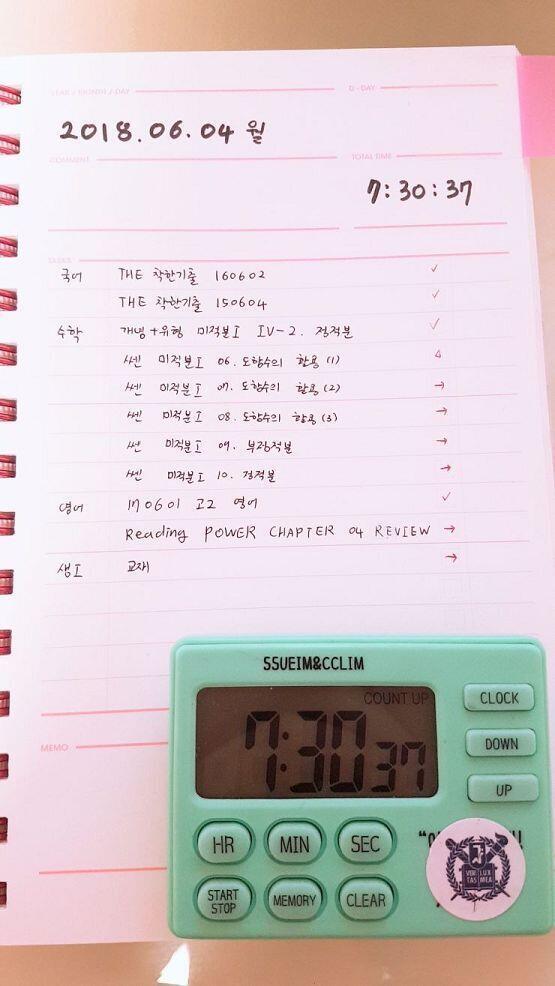 YEAR / MONTH / DAY D - DAY
2018.06.04 월
COMMENT TOTAL TIME
7:30:37
TASKS
국어 THE 착한기출 160602 ✓
THE 착한기출 150604 ✓
수학 개념+유형 미적분Ⅰ Ⅳ-2. 정적분 ✓
쎈 미적분Ⅰ 06. 도함수의 활용 (1) △
쎈 미적분Ⅰ 07. 도함수의 활용 (2) →
쎈 미적분Ⅰ 08. 도함수의 활용 (3) →
쎈 미적분Ⅰ 09. 부정적분 →
쎈 미적분Ⅰ 10. 정적분 →
영어 170601 고2 영어 ✓
Reading POWER CHAPTER 04 REVIEW →
생Ⅰ 교재 →
MEMO
SSUEIM&CCLIM
COUNT UP
7:30 37
CLOCK
DOWN
UP
HR MIN SEC
START STOP MEMORY CLEAR
VERI LUX
TAS MEA